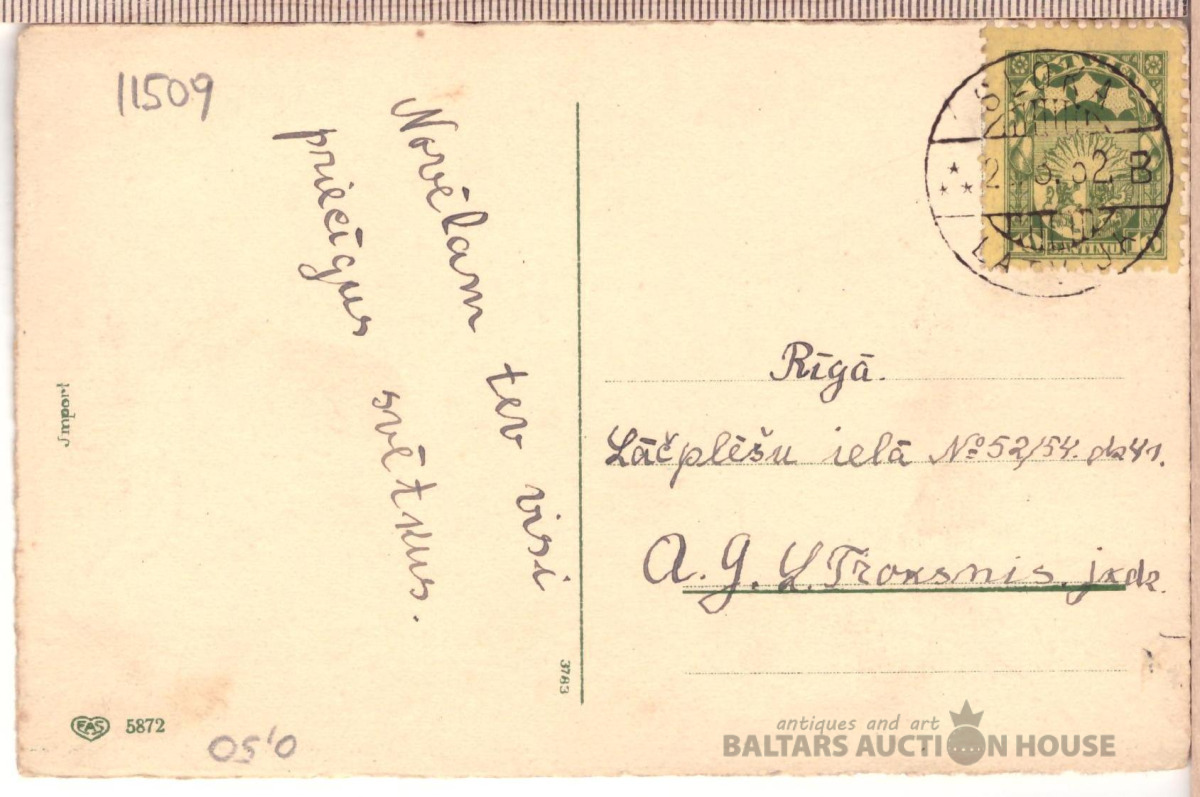 11509
Novēlam tev visi
priecīgus svētkus.
Import
EAS 5872
0,50
3783
SLOKA
B
LATVIJA
Rīgā.
Lāčplēšu ielā № 52/54. dz 41.
A. G. L. Troksnis. jkdz.
antiques and art
BALTARS AUCTION HOUSE